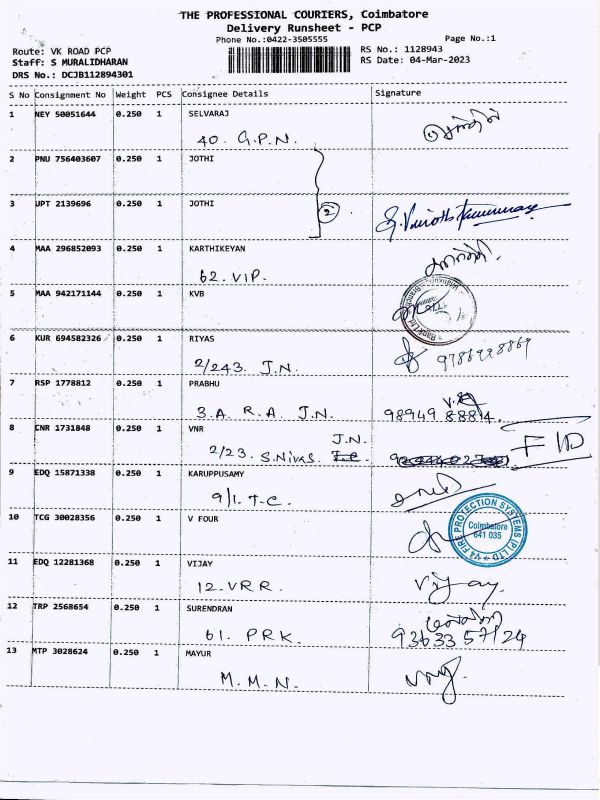 THE PROFESSIONAL COURIERS, Coimbatore
Delivery Runsheet - PCP
Phone No.:0422-3505555
Page No.:1
Route: VK ROAD PCP
Staff: S MURALIDHARAN
DRS No.: DCJB112894301
RS No.: 1128943
RS Date: 04-Mar-2023
S No Consignment No Weight PCS Consignee Details Signature
1 NEY 50051644 0.250 1 SELVARAJ
40. G.P.N.
2 PNU 756403607 0.250 1 JOTHI
3 UPT 2139696 0.250 1 JOTHI
2
4 MAA 296852093 0.250 1 KARTHIKEYAN
62. VIP.
5 MAA 942171144 0.250 1 KVB
6 KUR 694582326 0.250 1 RIYAS
2/243. J.N.
7 RSP 1778812 0.250 1 PRABHU
3.A. R.A. J.N. 98949 88814.
8 CNR 1731848 0.250 1 VNR
J.N.
2/23. S.Nivas
9 EDQ 15871338 0.250 1 KARUPPUSAMY
9/1. T.C.
10 TCG 30028356 0.250 1 V FOUR
V4 FIRE PROTECTION SYSTEMS (P) LTD
Coimbatore
641 035
11 EDQ 12281368 0.250 1 VIJAY
12. V.R.R. Vijay.
12 TRP 2568654 0.250 1 SURENDRAN
61. P.R.K. 93633 57124
13 MTP 3028624 0.250 1 MAYUR
M.M.N.